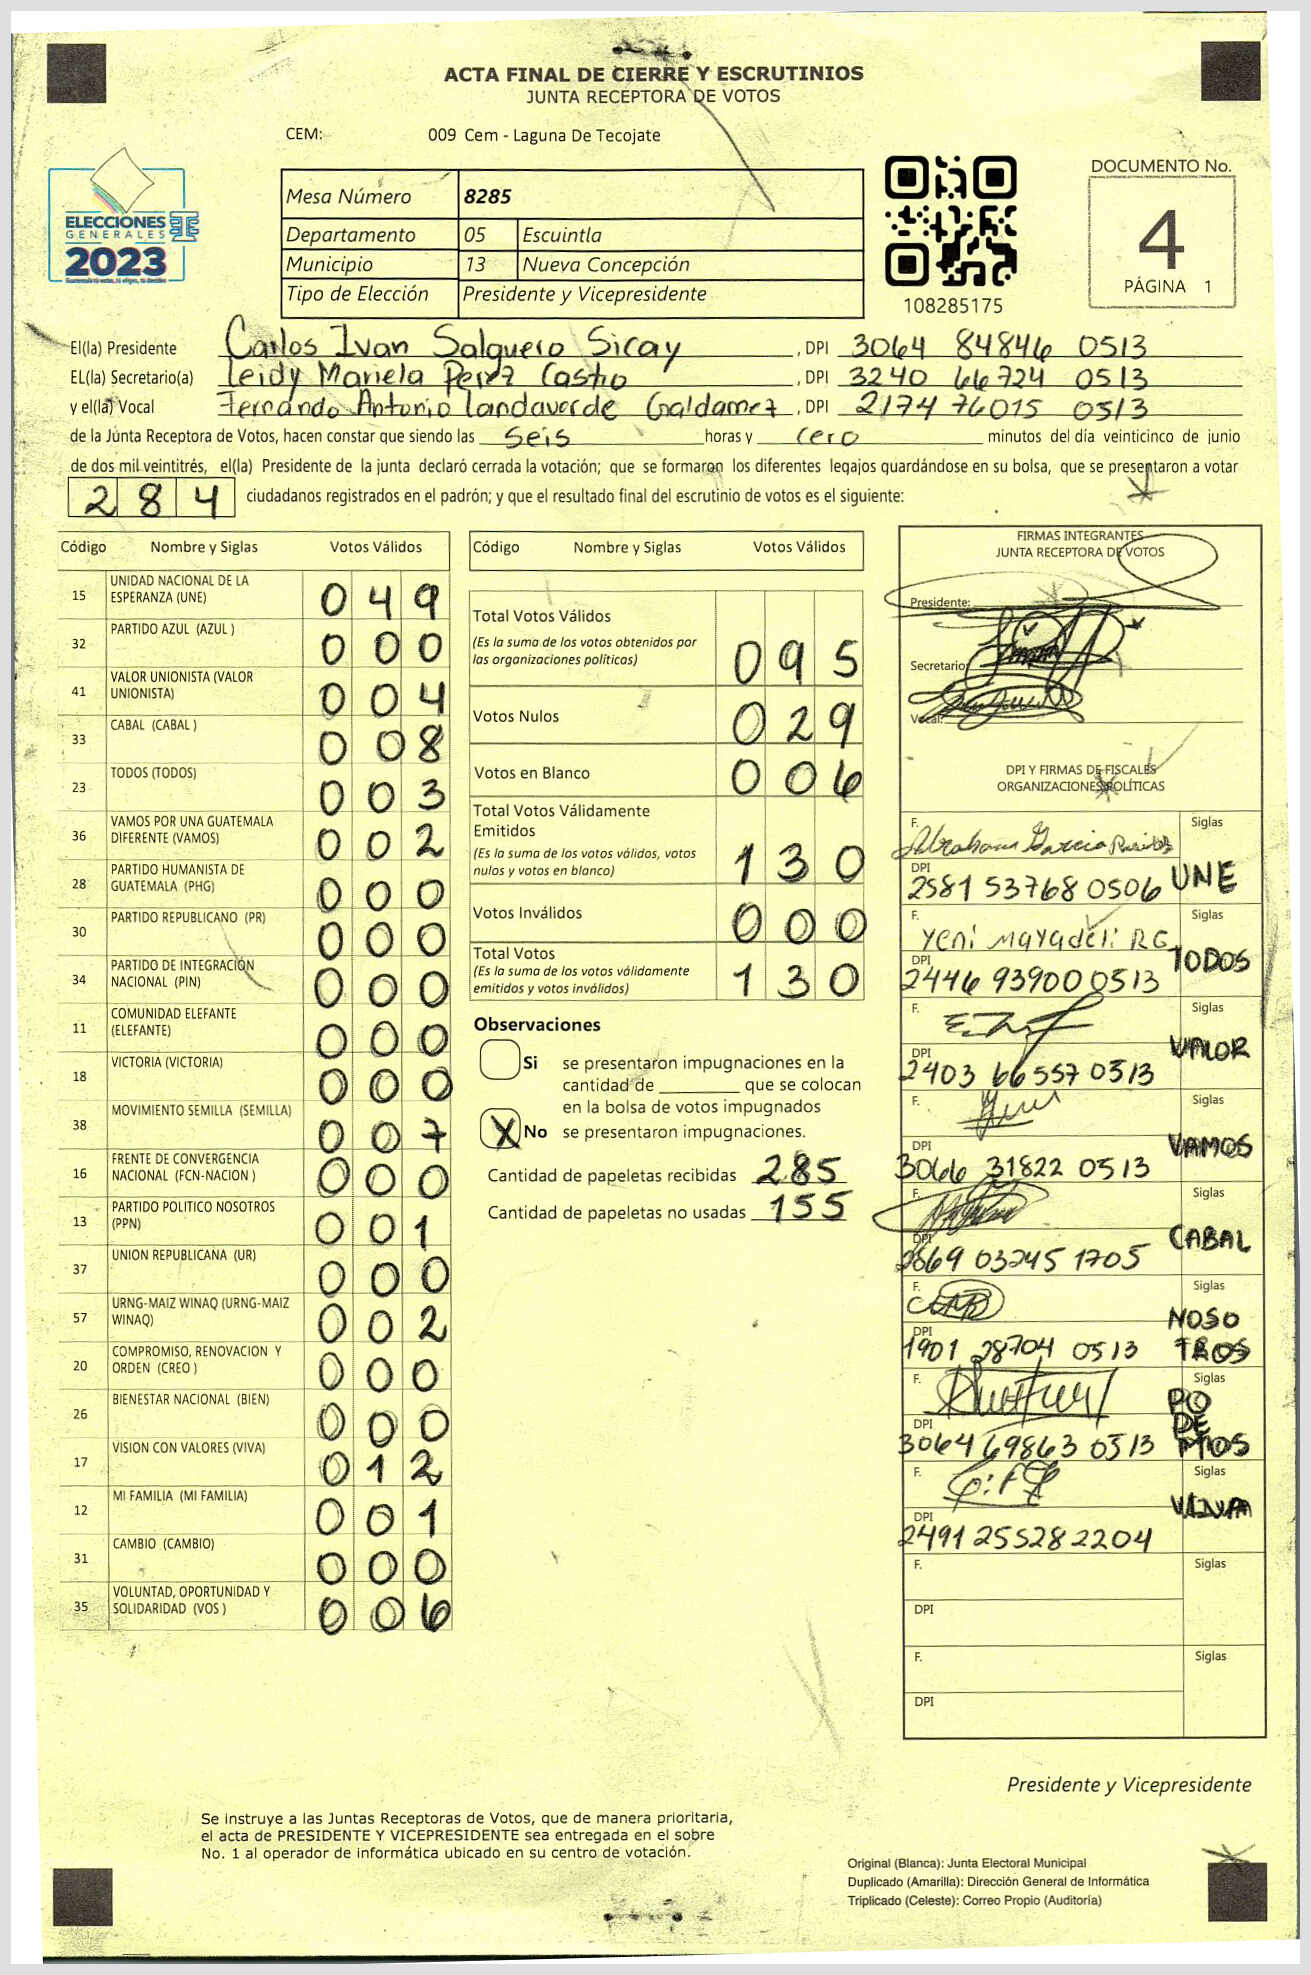 ACTA FINAL DE CIERRE Y ESCRUTINIOS
JUNTA RECEPTORA DE VOTOS
CEM: 009 Cem - Laguna De Tecojate
ELECCIONES
GENERALES
2023
Mesa Número 8285
Departamento 05 Escuintla
Municipio 13 Nueva Concepción
Tipo de Elección Presidente y Vicepresidente
108285175
DOCUMENTO No.
4
PÁGINA 1
El(la) Presidente Carlos Ivan Salguero Sicay, DPI 3064 84846 0513
EL(la) Secretario(a) Leidy Mariela Perez Castro, DPI 3240 66724 0513
y el(la) Vocal Fernando Antonio Landaverde Galdamez, DPI 2174 76015 0513
de la Junta Receptora de Votos, hacen constar que siendo las seis horas y cero minutos del día veinticinco de junio
de dos mil veintitrés, el(la) Presidente de la junta declaró cerrada la votación; que se formaron los diferentes legajos guardándose en su bolsa, que se presentaron a votar
284 ciudadanos registrados en el padrón; y que el resultado final del escrutinio de votos es el siguiente:
Código Nombre y Siglas Votos Válidos
15 UNIDAD NACIONAL DE LA ESPERANZA (UNE) 049
32 PARTIDO AZUL (AZUL ) 000
41 VALOR UNIONISTA (VALOR UNIONISTA) 004
33 CABAL (CABAL ) 008
23 TODOS (TODOS) 003
36 VAMOS POR UNA GUATEMALA DIFERENTE (VAMOS) 002
28 PARTIDO HUMANISTA DE GUATEMALA (PHG) 000
30 PARTIDO REPUBLICANO (PR) 000
34 PARTIDO DE INTEGRACIÓN NACIONAL (PIN) 000
11 COMUNIDAD ELEFANTE (ELEFANTE) 000
18 VICTORIA (VICTORIA) 000
38 MOVIMIENTO SEMILLA (SEMILLA) 007
16 FRENTE DE CONVERGENCIA NACIONAL (FCN-NACION ) 000
13 PARTIDO POLITICO NOSOTROS (PPN) 001
37 UNION REPUBLICANA (UR) 000
57 URNG-MAIZ WINAQ (URNG-MAIZ WINAQ) 002
20 COMPROMISO, RENOVACION Y ORDEN (CREO ) 000
26 BIENESTAR NACIONAL (BIEN) 000
17 VISION CON VALORES (VIVA) 012
12 MI FAMILIA (MI FAMILIA) 001
31 CAMBIO (CAMBIO) 000
35 VOLUNTAD, OPORTUNIDAD Y SOLIDARIDAD (VOS ) 006
Código Nombre y Siglas Votos Válidos
Total Votos Válidos 095
(Es la suma de los votos obtenidos por
las organizaciones políticas)
Votos Nulos 029
Votos en Blanco 006
Total Votos Válidamente
Emitidos 130
(Es la suma de los votos válidos, votos
nulos y votos en blanco)
Votos Inválidos 000
Total Votos 130
(Es la suma de los votos válidamente
emitidos y votos inválidos)
Observaciones
Si se presentaron impugnaciones en la
cantidad de ________ que se colocan
en la bolsa de votos impugnados
X No se presentaron impugnaciones.
Cantidad de papeletas recibidas 285
Cantidad de papeletas no usadas 155
FIRMAS INTEGRANTES
JUNTA RECEPTORA DE VOTOS
Presidente:
Secretario:
Vocal:
DPI Y FIRMAS DE FISCALES
ORGANIZACIONES POLÍTICAS
F. Abraham Garcia Siglas
DPI 2581 53768 0506 UNE
F. Yeni Mayadeli RG Siglas
DPI 2446 93900 0513 TODOS
F. Siglas
DPI 2403 66557 0513 VALOR
F. Siglas
DPI 3066 31822 0513 VAMOS
F. Siglas
DPI 2869 03245 1705 CABAL
F. Siglas
DPI 1901 28704 0513 NOSOTROS
F. Siglas
DPI 3064 69863 0513 PODEMOS
F. Siglas
DPI 2491 25528 2204 VIVA
F. Siglas
DPI
F. Siglas
DPI
Presidente y Vicepresidente
Se instruye a las Juntas Receptoras de Votos, que de manera prioritaria,
el acta de PRESIDENTE Y VICEPRESIDENTE sea entregada en el sobre
No. 1 al operador de informática ubicado en su centro de votación.
Original (Blanca): Junta Electoral Municipal
Duplicado (Amarilla): Dirección General de Informática
Triplicado (Celeste): Correo Propio (Auditoría)